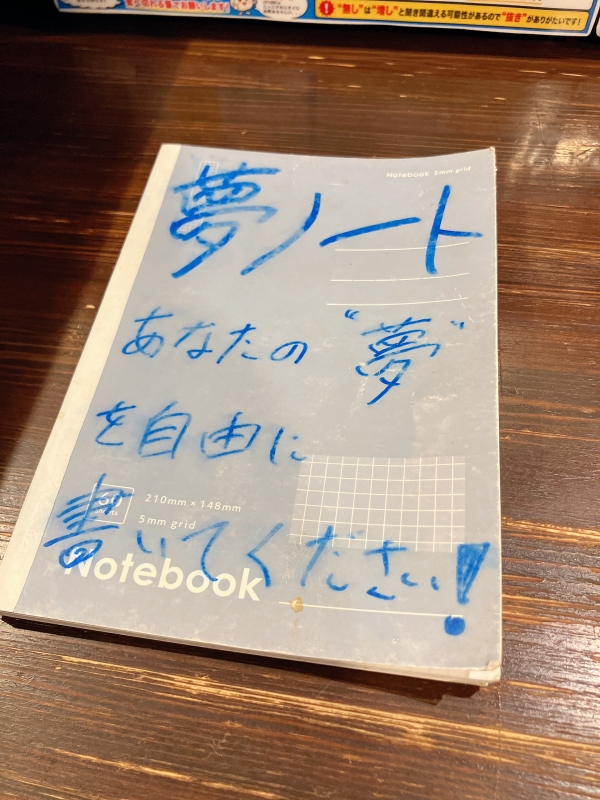 "無し"は"増し"と聞き間違える可能性があるので"抜き"がありがたいです!
Notebook 5mm grid
夢ノート
あなたの"夢"
を自由に
60
sheets
210mm×148mm
5mm grid
書いてください!
Notebook